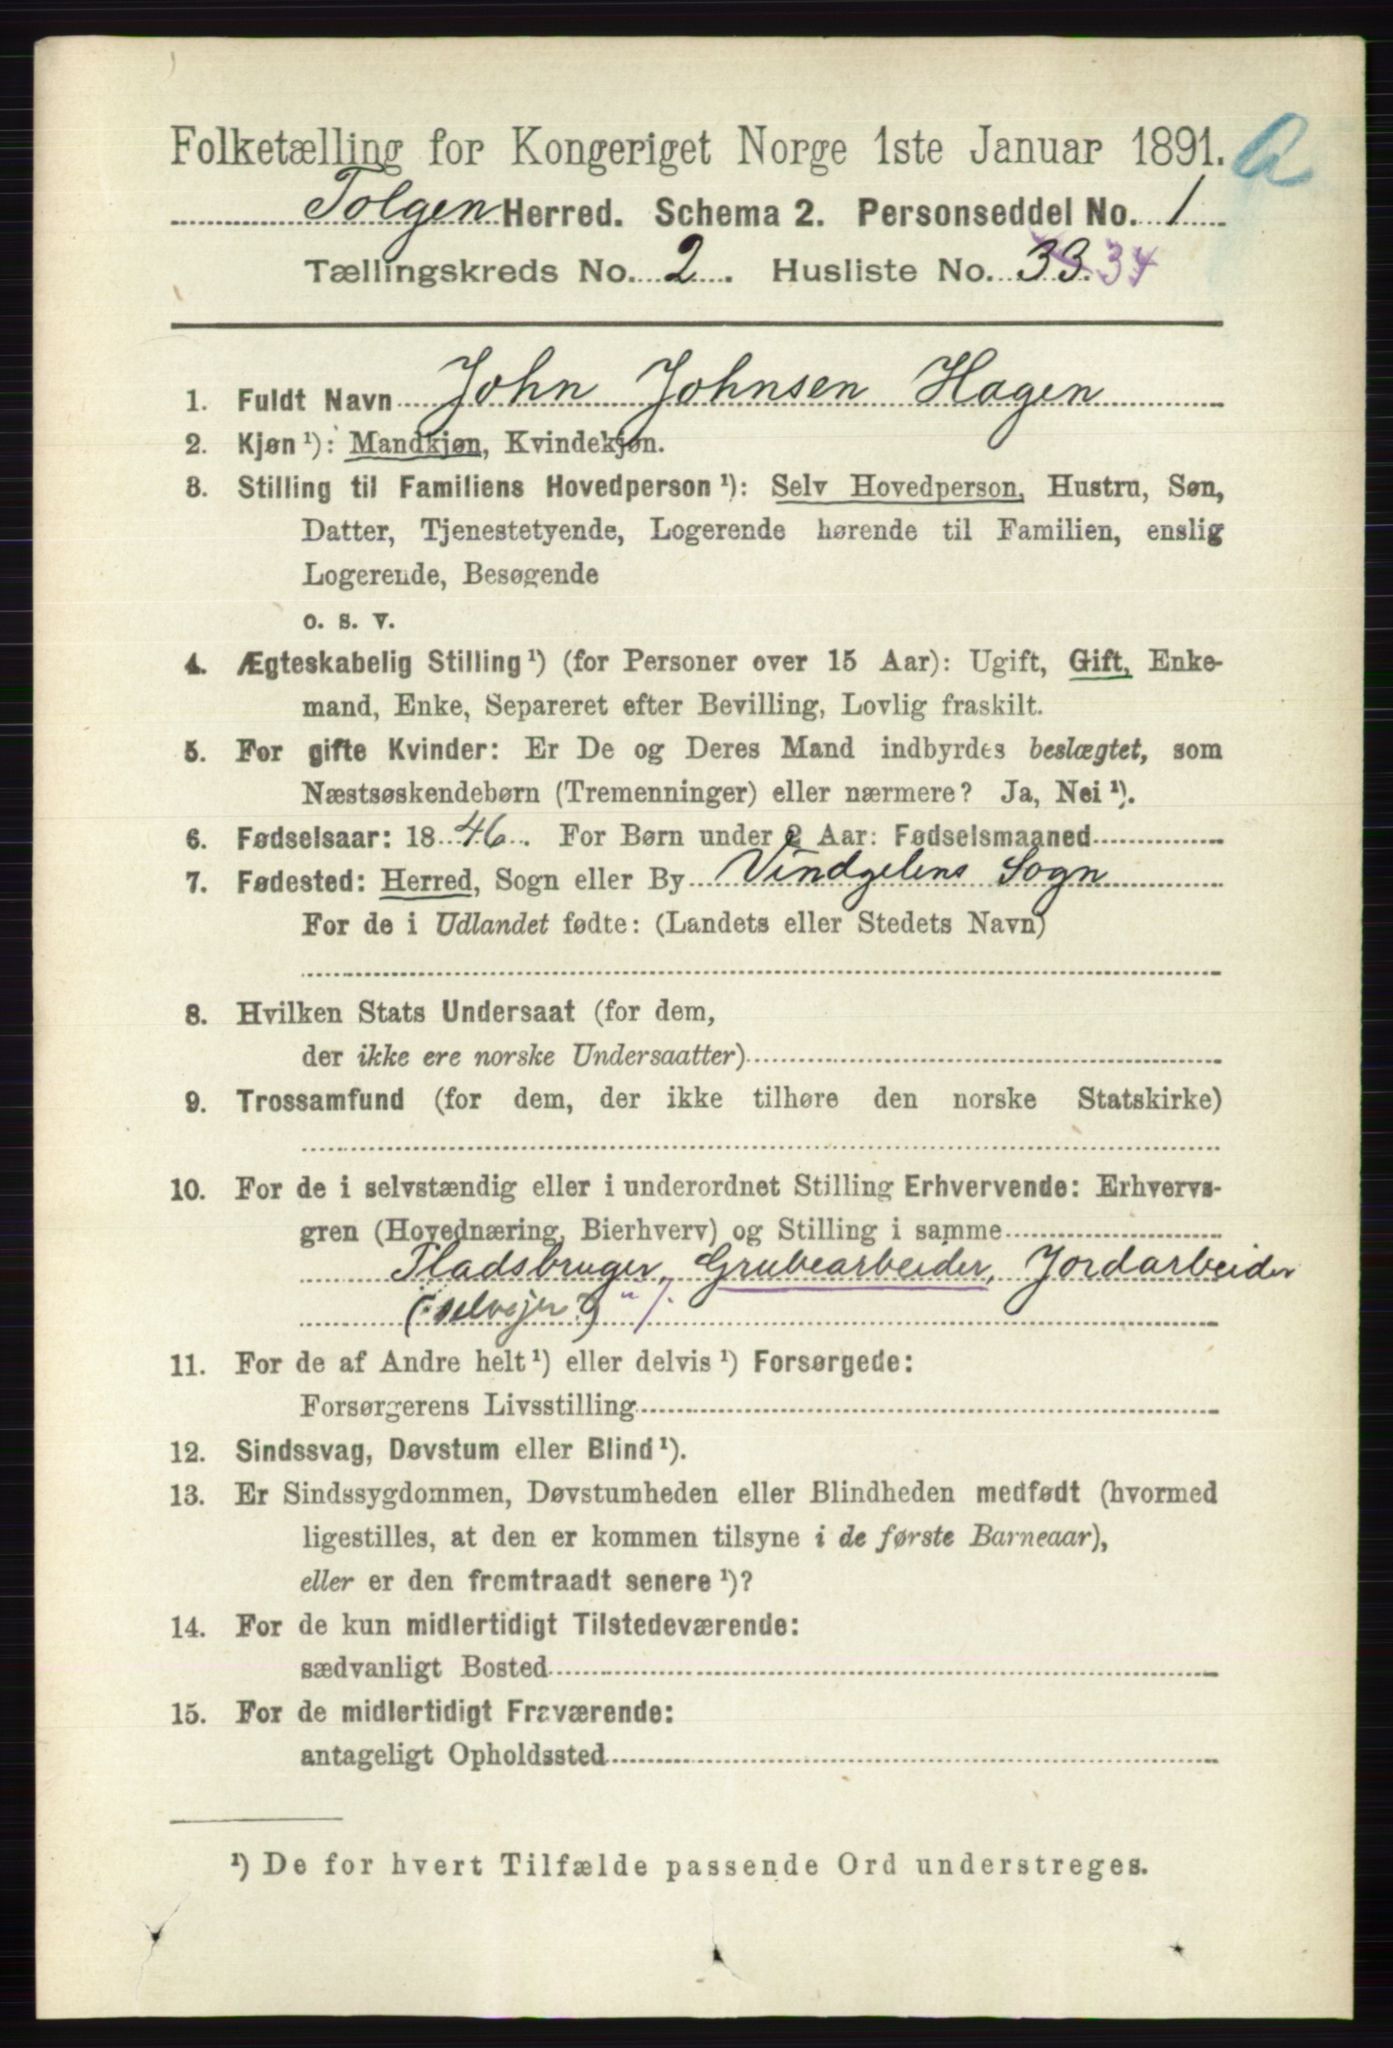 Folketælling for Kongeriget Norge 1ste Januar 1891. a
Tolgen Herred. Schema 2. Personseddel No. 1
Tællingskreds No. 2. Husliste No. 33. 34
1. Fuldt Navn John Johnsen Hagen
2. Kjøn ¹): Mandkjøn, Kvindekjøn.
3. Stilling til Familiens Hovedperson ¹): Selv Hovedperson, Hustru, Søn,
Datter, Tjenestetyende, Logerende hørende til Familien, enslig
Logerende, Besøgende
o. s. v.
4. Ægteskabelig Stilling ¹) (for Personer over 15 Aar): Ugift, Gift, Enke-
mand, Enke, Separeret efter Bevilling, Lovlig fraskilt.
5. For gifte Kvinder: Er De og Deres Mand indbyrdes beslægtet, som
Næstsøskendebørn (Tremenninger) eller nærmere? Ja, Nei ¹).
6. Fødselsaar: 1846. For Børn under 2 Aar: Fødselsmaaned
7. Fødested: Herred, Sogn eller By Vindgelens Sogn
For de i Udlandet fødte: (Landets eller Stedets Navn)
8. Hvilken Stats Undersaat (for dem,
der ikke ere norske Undersaatter)
9. Trossamfund (for dem, der ikke tilhøre den norske Statskirke)
10. For de i selvstændig eller i underordnet Stilling Erhvervende: Erhvervs-
gren (Hovednæring, Bierhverv) og Stilling i samme
Pladsbruger, Grubearbeider, Jordarbeider
(: selvejer ?)
11. For de af Andre helt ¹) eller delvis ¹) Forsørgede:
Forsørgerens Livsstilling
12. Sindssvag, Døvstum eller Blind ¹).
13. Er Sindssygdommen, Døvstumheden eller Blindheden medfødt (hvormed
ligestilles, at den er kommen tilsyne i de første Barneaar),
eller er den fremtraadt senere ¹)?
14. For de kun midlertidigt Tilstedeværende:
sædvanligt Bosted
15. For de midlertidigt Fraværende:
antageligt Opholdssted
¹) De for hvert Tilfælde passende Ord understreges.